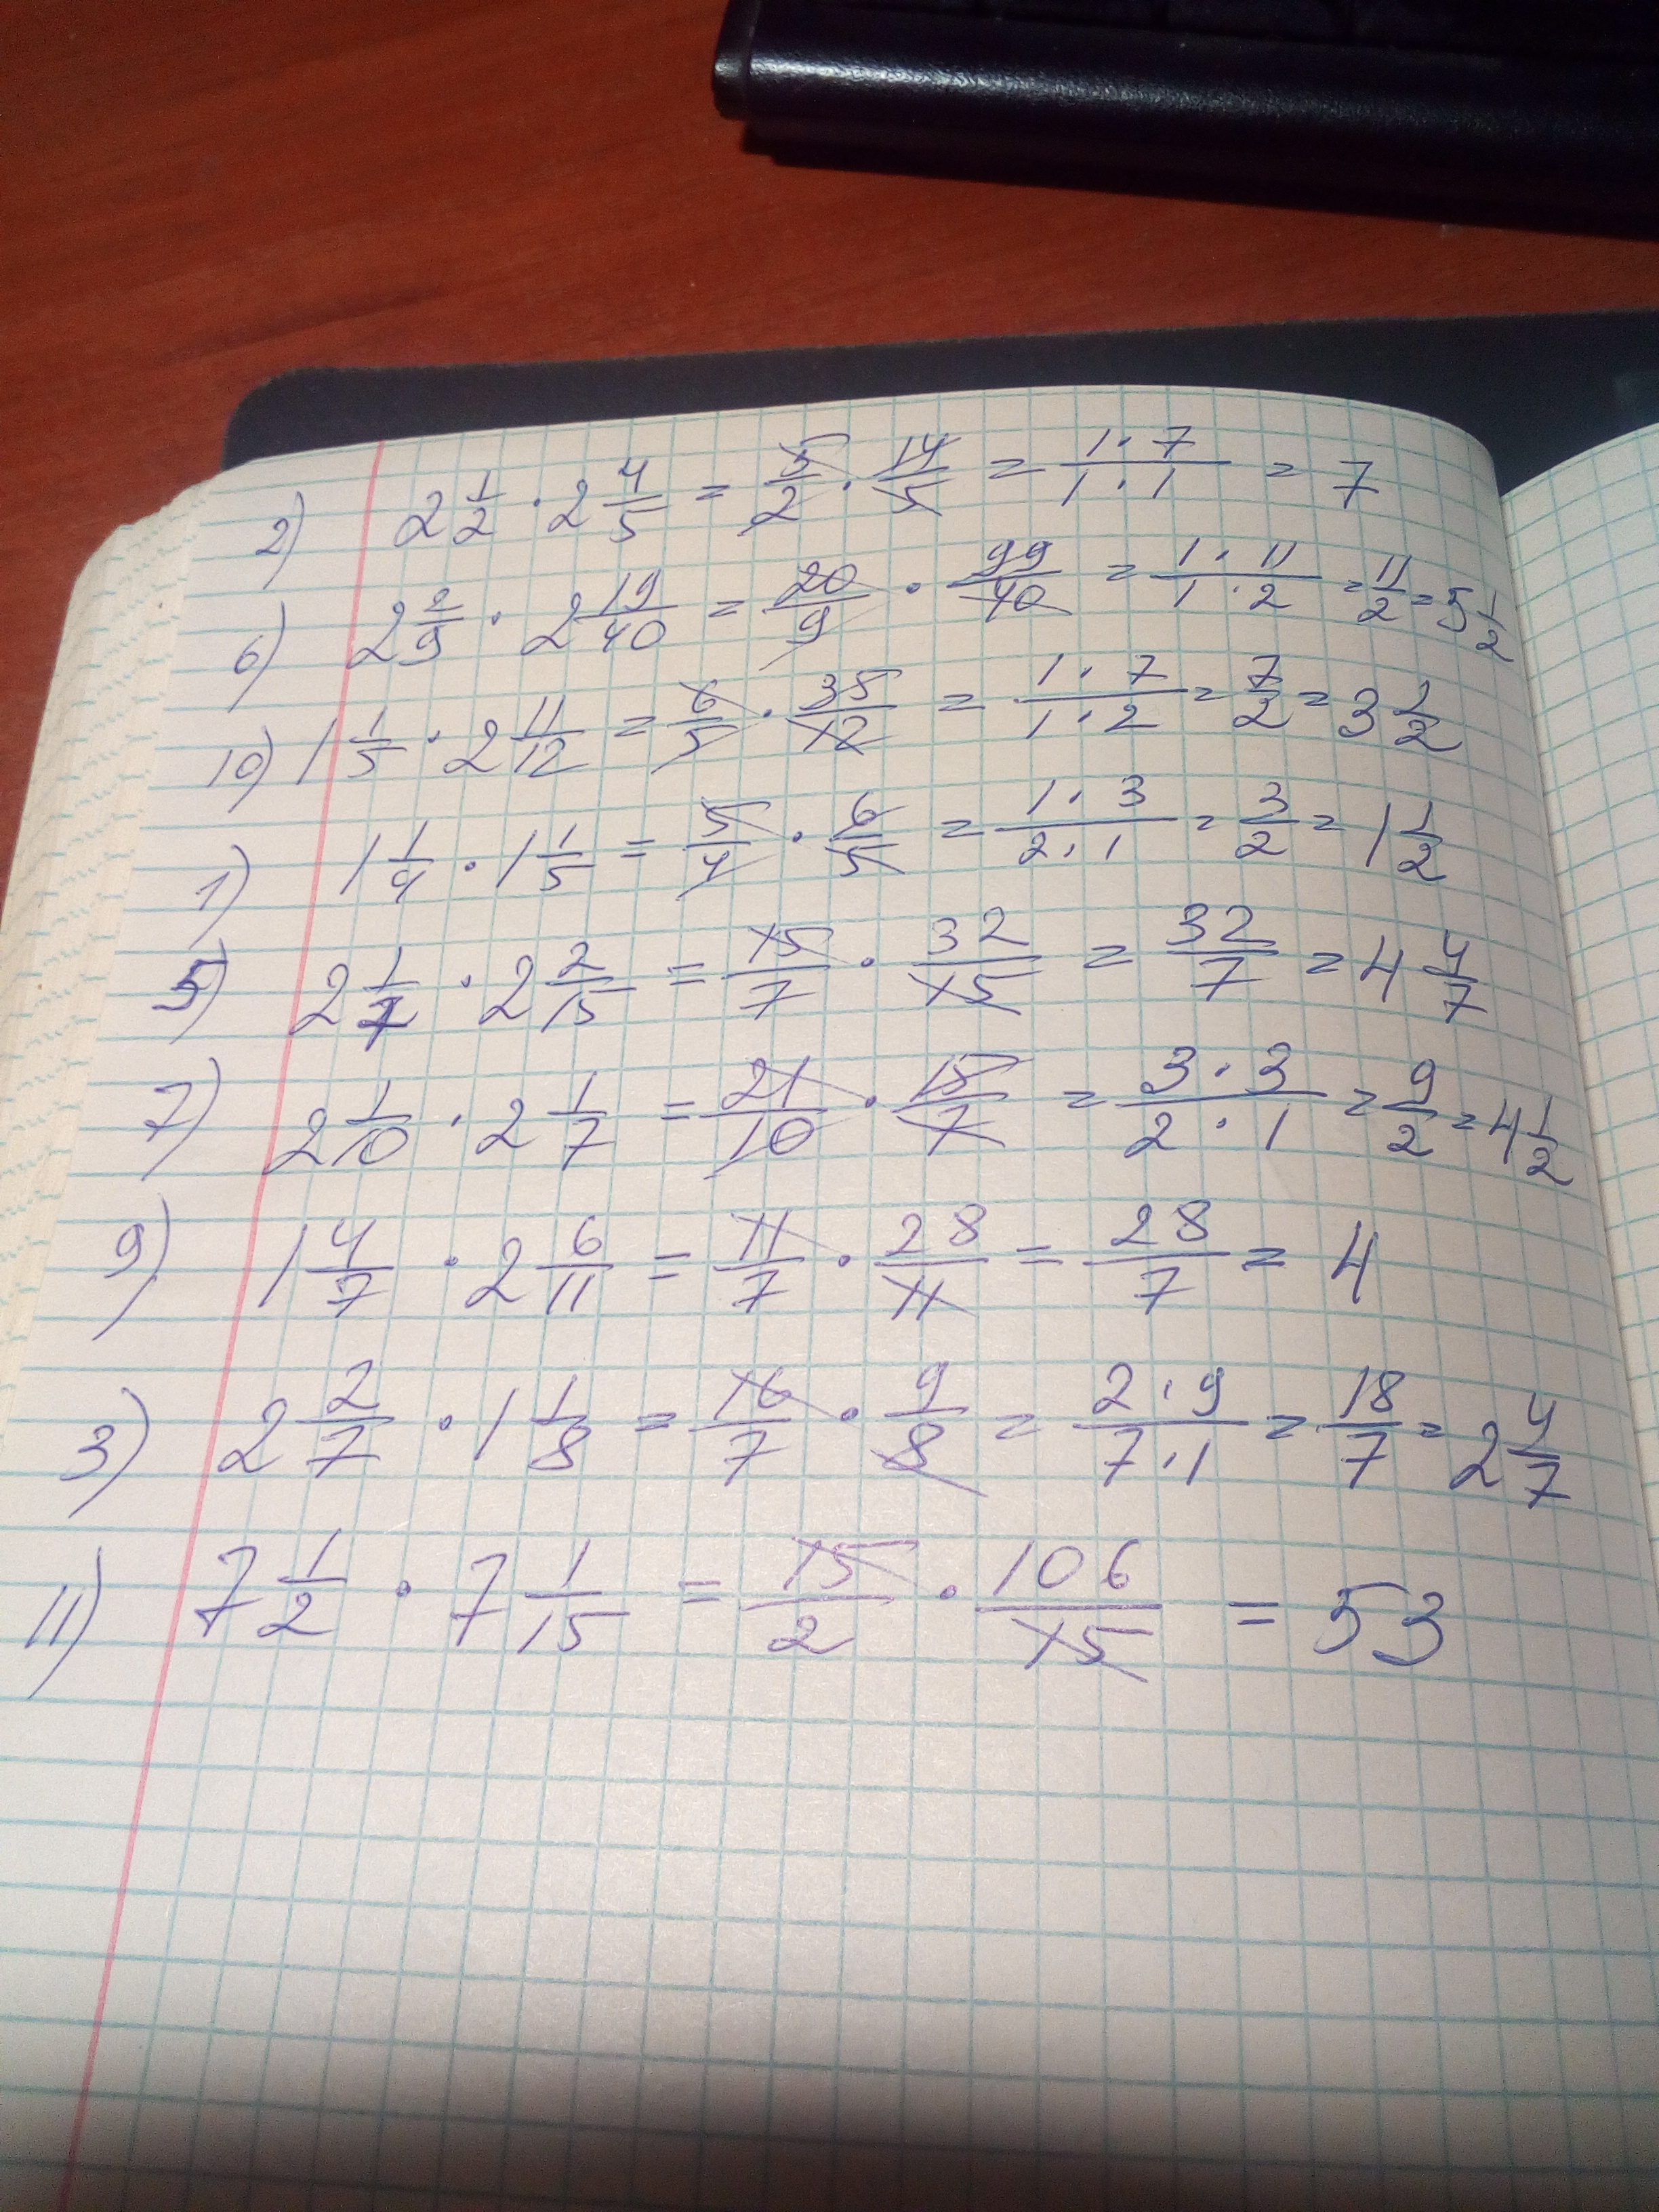 2) 2 1/2 · 2 4/5 = 5/2 · 14/5 = 1·7/1·1 = 7
6) 2 2/9 · 2 19/40 = 20/9 · 99/40 = 1·11/1·2 = 11/2 = 5 1/2
10) 1 1/5 · 2 11/12 = 6/5 · 35/12 = 1·7/1·2 = 7/2 = 3 1/2
1) 1 1/4 · 1 1/5 = 5/4 · 6/5 = 1·3/2·1 = 3/2 = 1 1/2
5) 2 1/7 · 2 2/15 = 15/7 · 32/15 = 32/7 = 4 4/7
7) 2 1/10 · 2 1/7 = 21/10 · 15/7 = 3·3/2·1 = 9/2 = 4 1/2
9) 1 4/7 · 2 6/11 = 11/7 · 28/11 = 28/7 = 4
3) 2 2/7 · 1 1/8 = 16/7 · 9/8 = 2·9/7·1 = 18/7 = 2 4/7
11) 7 1/2 · 7 1/15 = 15/2 · 106/15 = 53